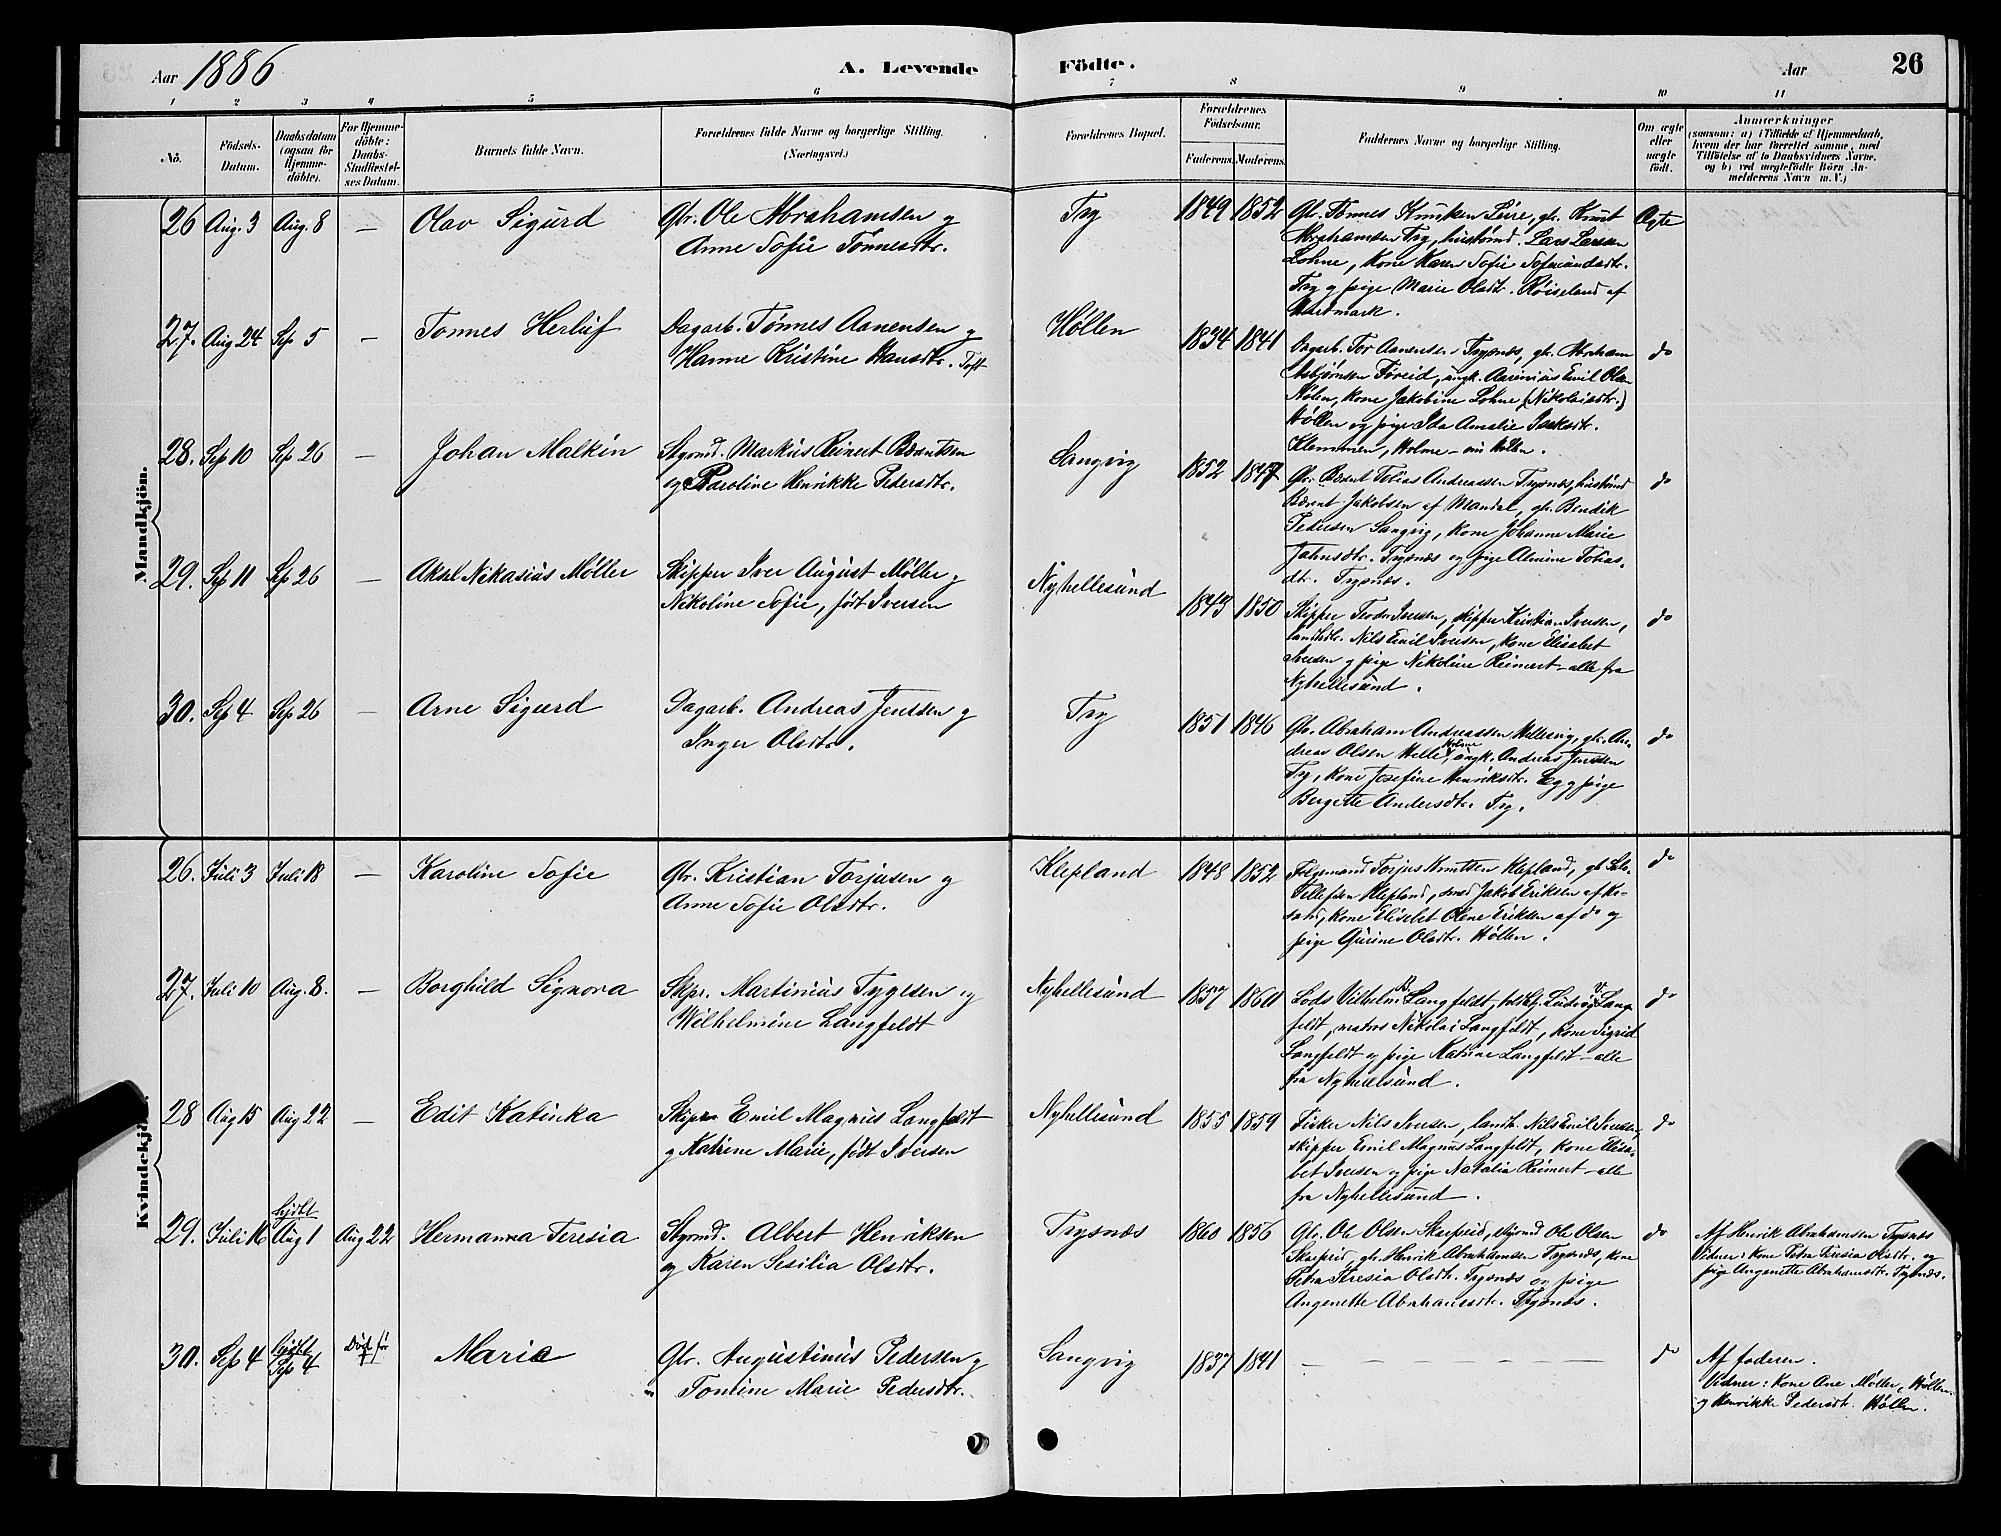 Aar 1886
A. Levende Födte.
Aar
26
1 2 3 4 5 6 7 8 9 10 11
No.
Födsels-Datum.
Daabsdatum (ogsaa for Hjemme-döbte).
For Hjemme-döbte: Daabs-Stadfæstel-ses Datum.
Barnets fulde Navn.
Forældrenes fulde Navne og borgerlige Stilling. (Næringsvei.)
Forældrenes Bopæl.
Forældrenes Födselsaar.
Faderens. Moderens.
Faddernes Navne og borgerlige Stilling.
Om ægte eller uægte födt.
Anmærkninger
(saasom: a) i Tilfælde af Hjemmedaab, hvem der har forrettet samme, med Tilföielse af to Daabsvidners Navne, og b) ved uægtefödte Börn An-melderens Navn m. V.)
Mandkjön.
26 Aug. 3 Aug. 8 — Olav Sigurd
Gbr. Ole Abrahamsen og
Anne Sofie Tønnesdtr.
Try 1849 1852
Gbr. Tønnes Knutsen Leire, gbr. Knut
Abrahamsen Try, husmd. Lars Larsen
Lohne, kone Karen Sofie
Try og pige Marie Olsdtr. Røiseland af
Ægte
27. Aug 24 Sep 5 — Tønnes Herluf
Dagarb. Tønnes Aanensen og
Hanne Kristine Hansdtr. Toft
Høllen 1834 1841
Dagarb. Tor Aanensen Trysnæs, gbr. Abraham
Asbjørnsen ungk. Emil Olsen
kone Jakobine Lohne (Nikolaisdtr.)
Høllen og pige Ida Amalie Isaksdtr.
Klemmen, Holme – nu Høllen.
do
28. Sep 10 Sep 26 — Johan Malkin
Styrmd. Markus Reinert Berentsen
og Karoline Henrikke Pedersdtr.
Langvig 1852 1847
Gbr. Berent Tobias Andreassen Trysnæs, husmd
Berent Jakobsen af Mandal, gbr. Bendik
Pedersen Langvig, kone Johanne Marie
Jahnsdtr. Trysnæs og pige Almine Tobias-
dtr. Trysnæs.
do
29. Sep 11 Sep 26 — Aksel Nikasius Møller
Skipper Iver August Møller og
Nikoline Sofie, født Iversen
Nyhellesund 1843 1850
Skipper Teodor Iversen, skipper Kristian Iversen,
landhdl. Nils Emil Iversen, kone Elisabet
Iversen og pige Nikoline Reimert – alle fra
Nyhellesund.
do
30. Sep 4 Sep 26 — Arne Sigurd
Dagarb. Andreas Jenssen og
Inger Olsdtr.
Try 1851 1846
Gbr. Abraham Andreassen Hellevig, gbr. An-
dreas Olsen Helle, Holme, ungk. Andreas Jenssen
Try, kone Josefine Henriksdtr. Eeg og pige
Bergette Andersdtr. Try.
do
Kvindekjön.
26. Juli 3 Juli 18 — Karoline Sofie
Gbr. Kristian Torjusen og
Anne Sofie Olsdtr.
Klepland 1848 1852
Folgemand Torjus Knutsen Klepland, gbr.
Tellefsen Klepland, smed Jakob Eriksen af Kr.
sand, kone Elisbet Olene Eriksen af do og
pige Gurine Olsdtr. Høllen.
do
27. Juli 10 Aug. 8. — Borghild Signora
Skpr. Martinius Tygesen og
Wilhelmine Langfeldt
Nyhellesund 1857 1860
Lods Vilhelm B. Langfeldt, Ludvig V. Lang-
feldt, matros Nikolai Langfeldt, kone Sigrid
Langfeldt og pige Katrine Langfeldt – alle
fra Nyhellesund.
do
28 Aug 15 Aug 22 — Edit Katinka
Skipr. Emil Magnus Langfeldt
og Katrine Marie, født Iversen
Nyhellesund 1855 1859
Fisker Nils Iversen, landh. Nils Emil Iversen,
skipper Emil Magnus Langfeldt, kone Elisa-
bet Iversen og pige Natalia Reimert – alle
fra Nyhellesund.
do
29. Juli 16 hjdbt Aug 1 Aug 22 Hermanna Teresia
Styrmd. Albert Henriksen
og Karen Sesilia Olsdtr.
Trysnæs 1860 1856
Gbr. Ole Olsen Skarpeid, styrmd Ole Olsen
Skarpeid, gbr. Henrik Abrahamsen Trysnæs, kone
Petra Teresia Olsdtr. Trysnæs og pige
Angenette Abrahamsdtr. Trysnæs.
do
Af Henrik Abrahamsen Trysnæs
Vidner: kone Petra Teresia Olsdtr. og
pige Angenette Abrahamsdtr. Trysnæs.
30. Sep 4 hjdbt Sep 4 Död før Marie
Gbr. Augustinus Pedersen og
Tomine Marie Pedersdtr.
Langvig 1837 1841
— — — — — —
do
Af faderen.
Vidner: kone Ane Møller, Høllen
og Henrikke Pedersdt. Høllen.